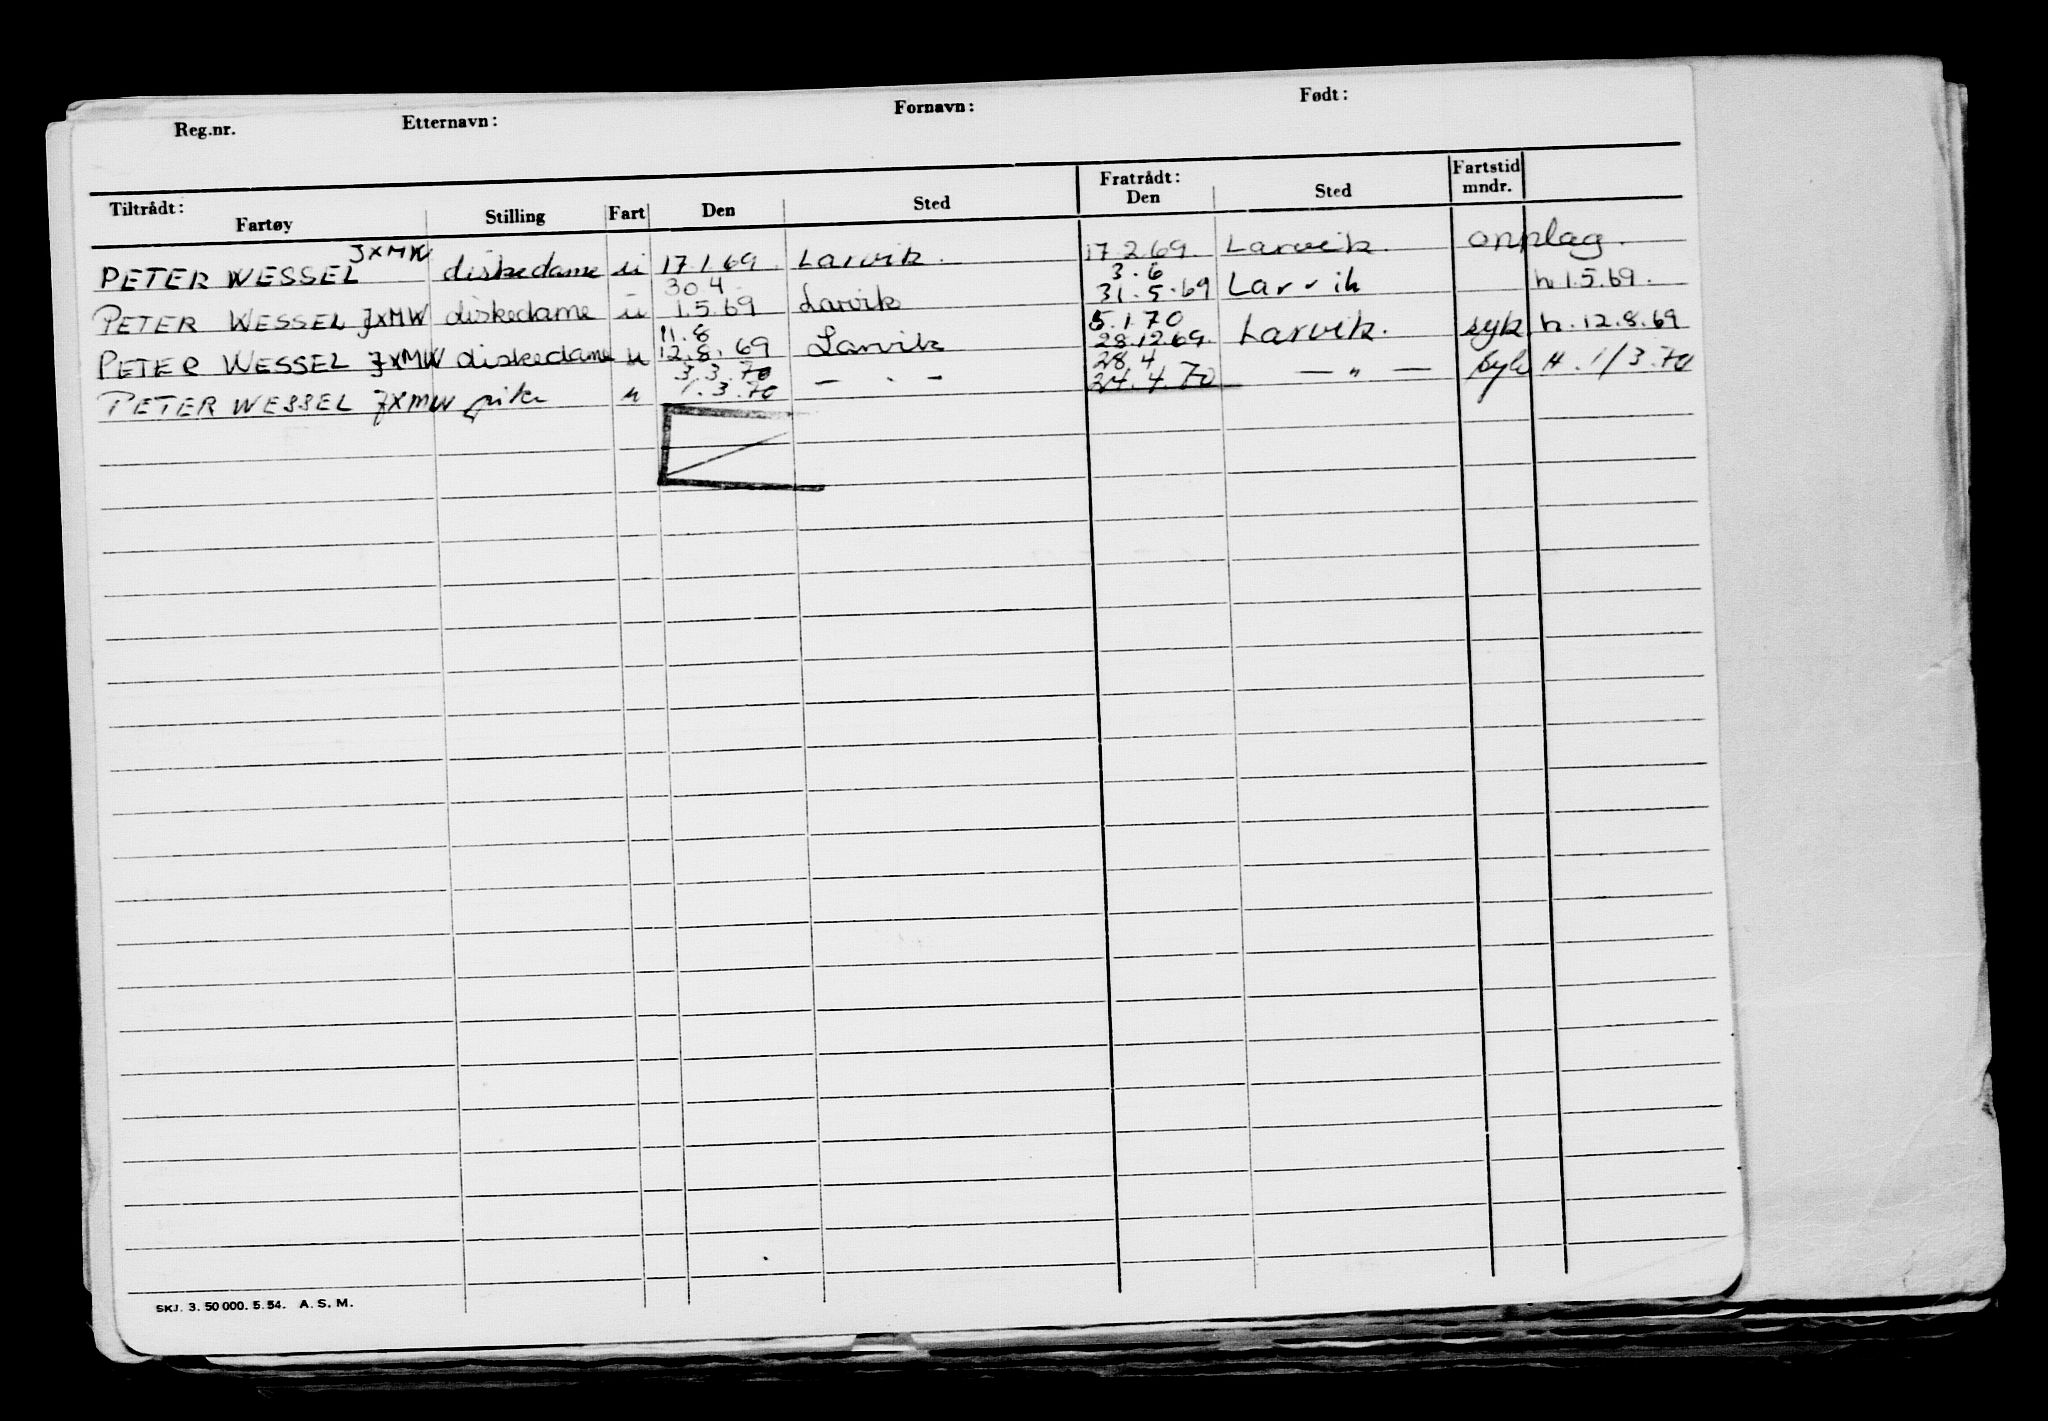 Reg.nr. Etternavn: Fornavn: Født:
Tiltrådt: Fratrådt: Fartstid
Fartøy Stilling Fart Den Sted Den Sted mndr.
JXMW
PETER WESSEL diskedame u 17.1.69. Larvik. 17.2.69. Larvik. opplag.
30 4 3.6
PETER WESSEL JXMW diskedame u 1.5.69 Larvik 31.5.69 Larvik h 1.5.69.
11.8 5.1.70
PETER WESSEL JXMW diskedame u 12.8.69 Larvik 28.12.69. Larvik. syk h. 12.8.69
3.3.70 28 4
PETER WESSEL JXMW pike u 1.3.70 — . — 24.4.70 — " — syk H. 1/3.70
SKJ. 3. 50 000. 5. 54. A. S. M.